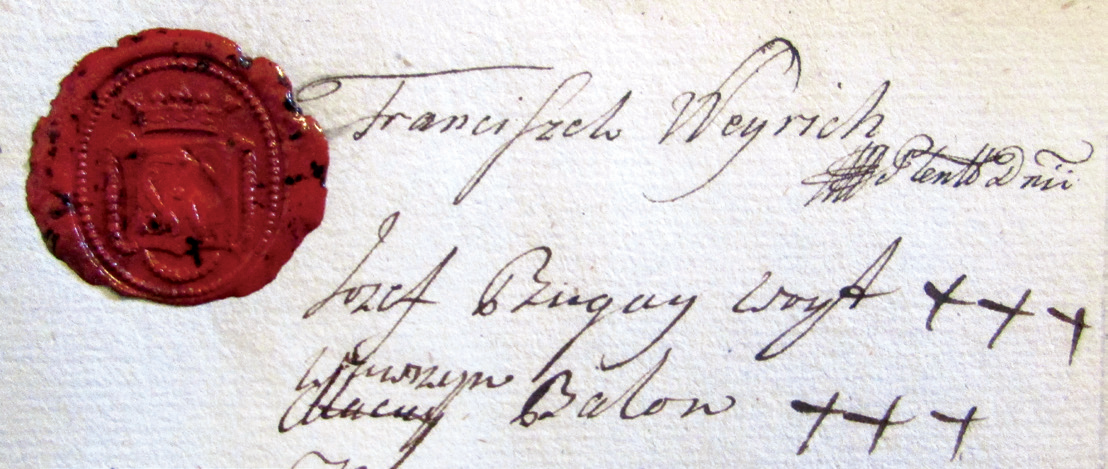 Franciszek Weyrich
Plentt Dnii
Jozef Bugay woyt +++
Wawrzyn
Maciey Balon +++